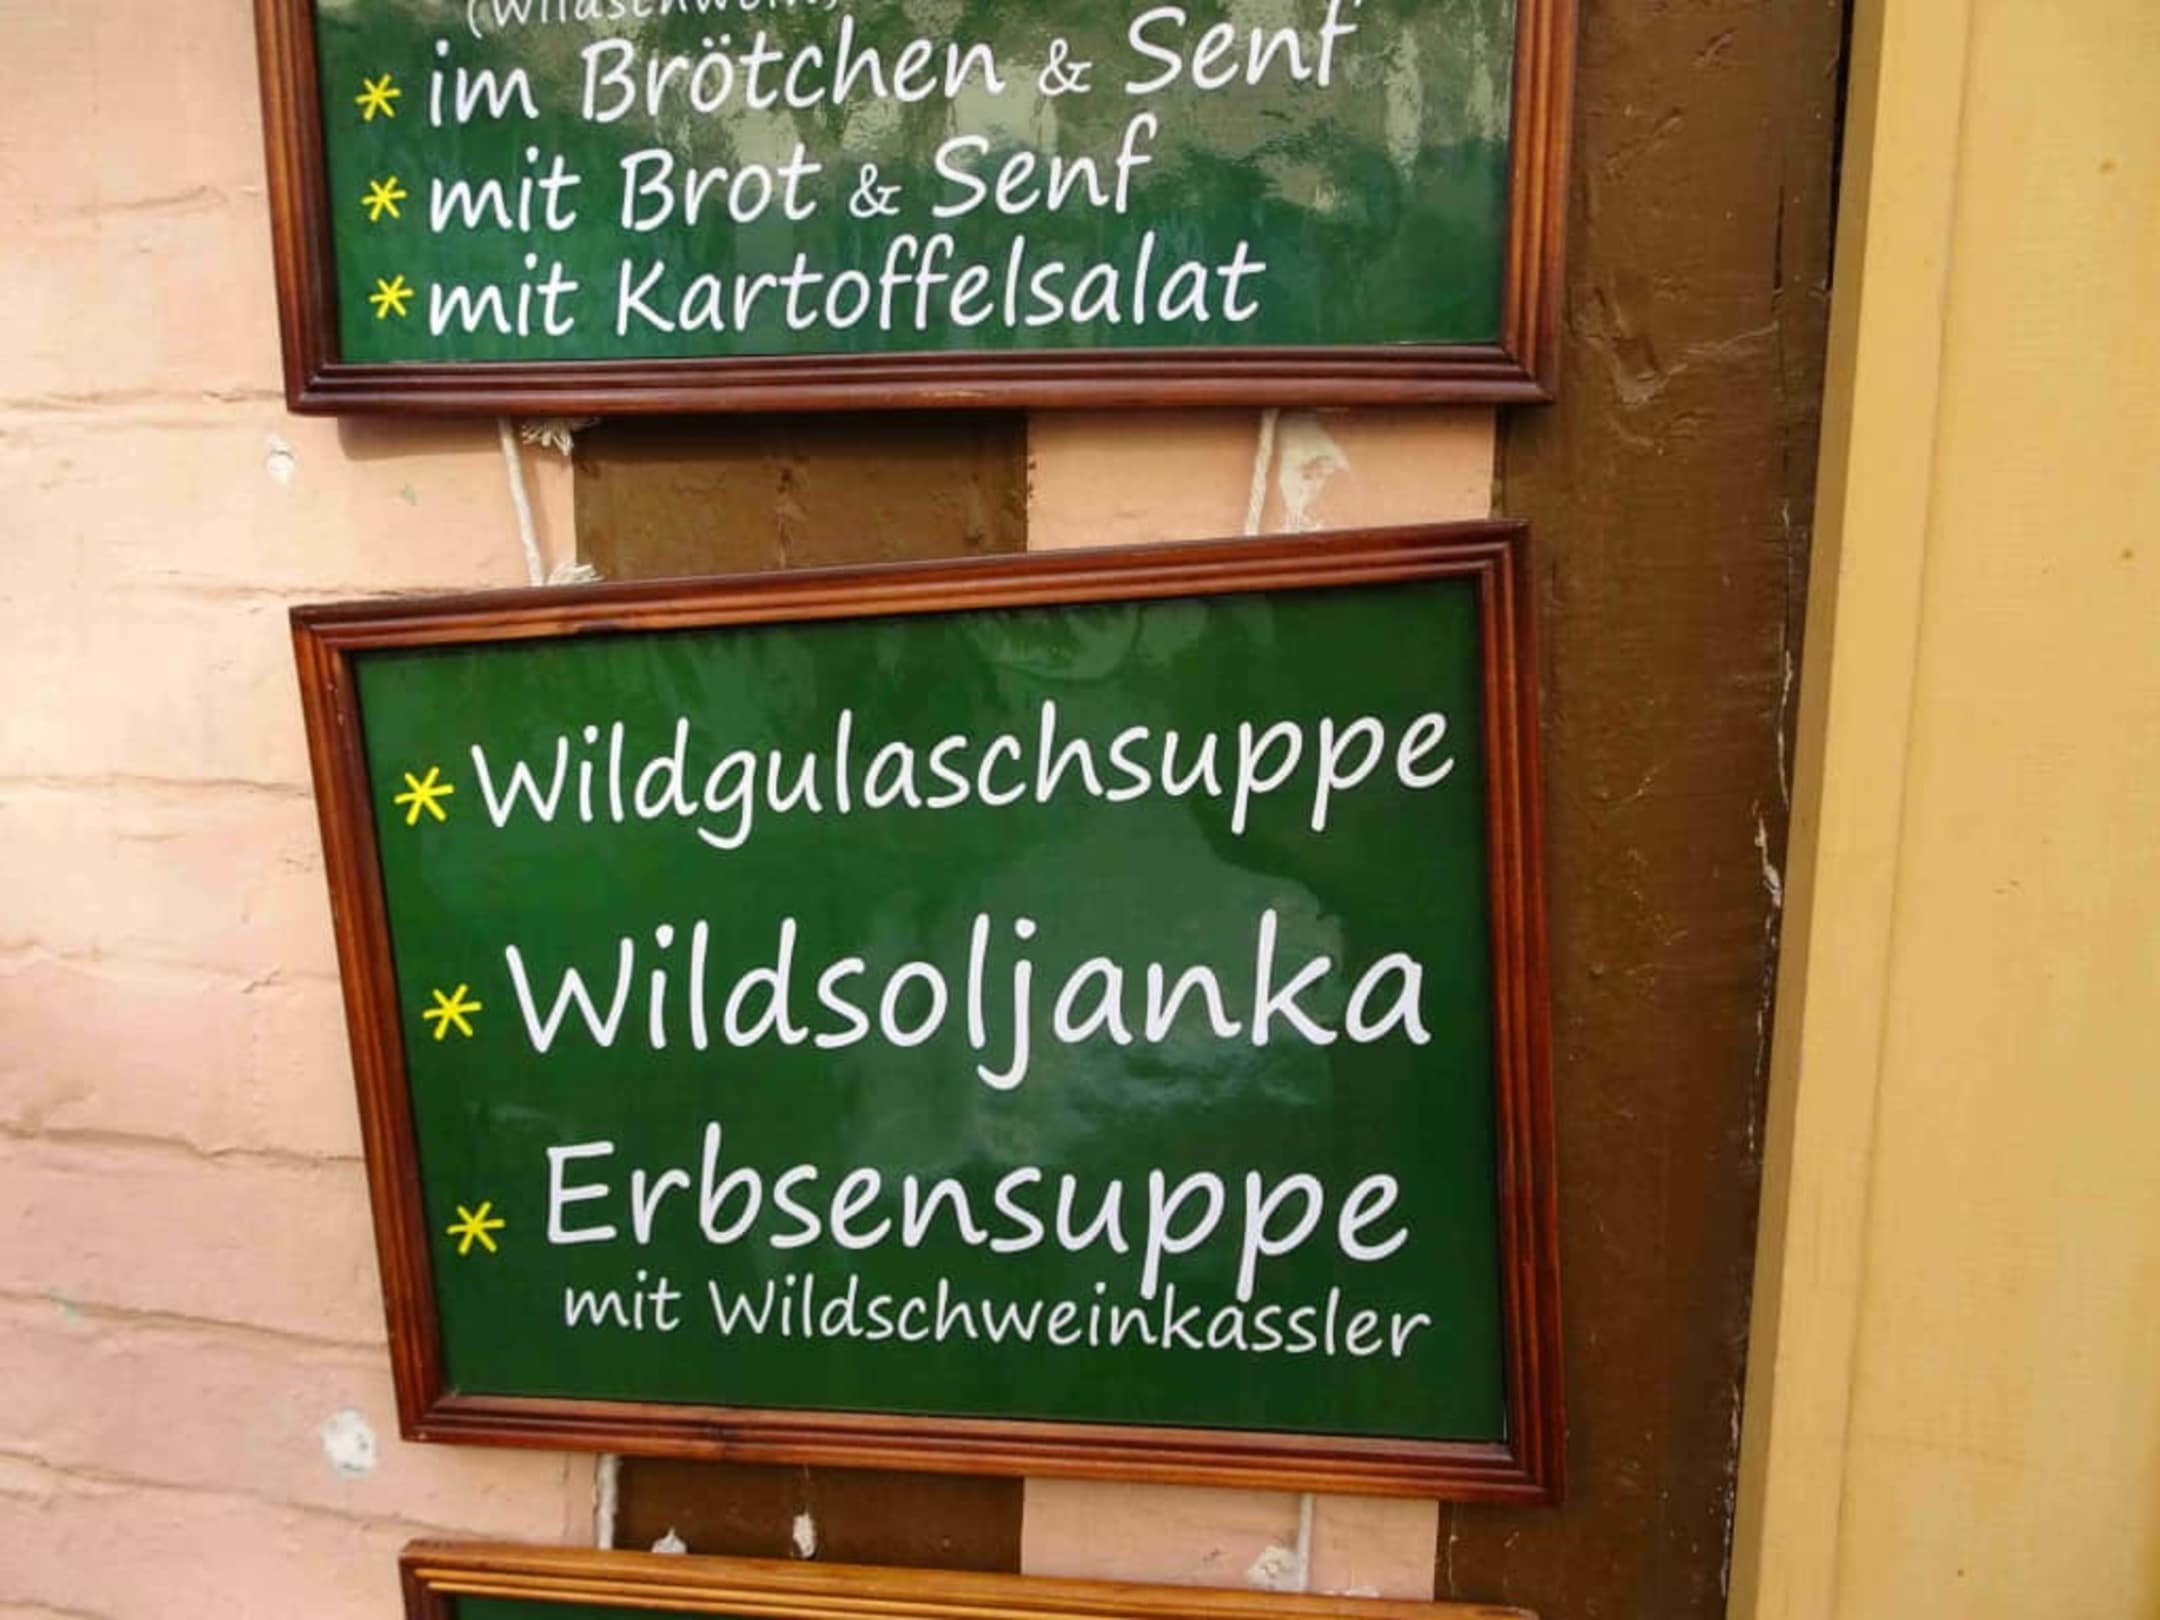 (Wildschwein)
* im Brötchen & Senf
* mit Brot & Senf
* mit Kartoffelsalat
* Wildgulaschsuppe
* Wildsoljanka
* Erbsensuppe
mit Wildschweinkassler